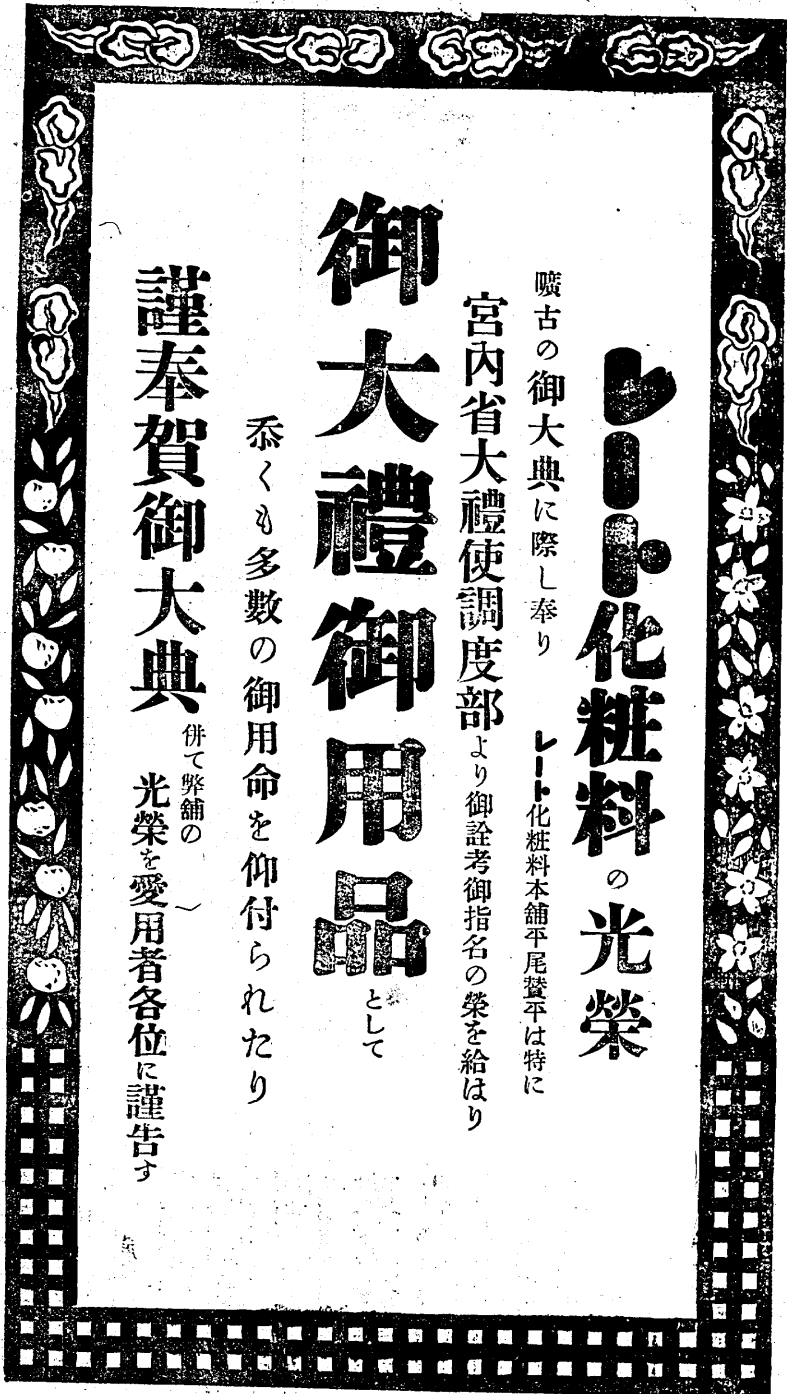 レート化粧料の光榮
曠古の御大典に際し奉り　レート化粧料本舖平尾賛平は特に
宮內省大禮使調度部より御詮考御指名の榮を給はり
御大禮御用品として
忝くも多數の御用命を仰付られたり
謹奉賀御大典
併て弊舖の
光榮を愛用者各位に謹告す